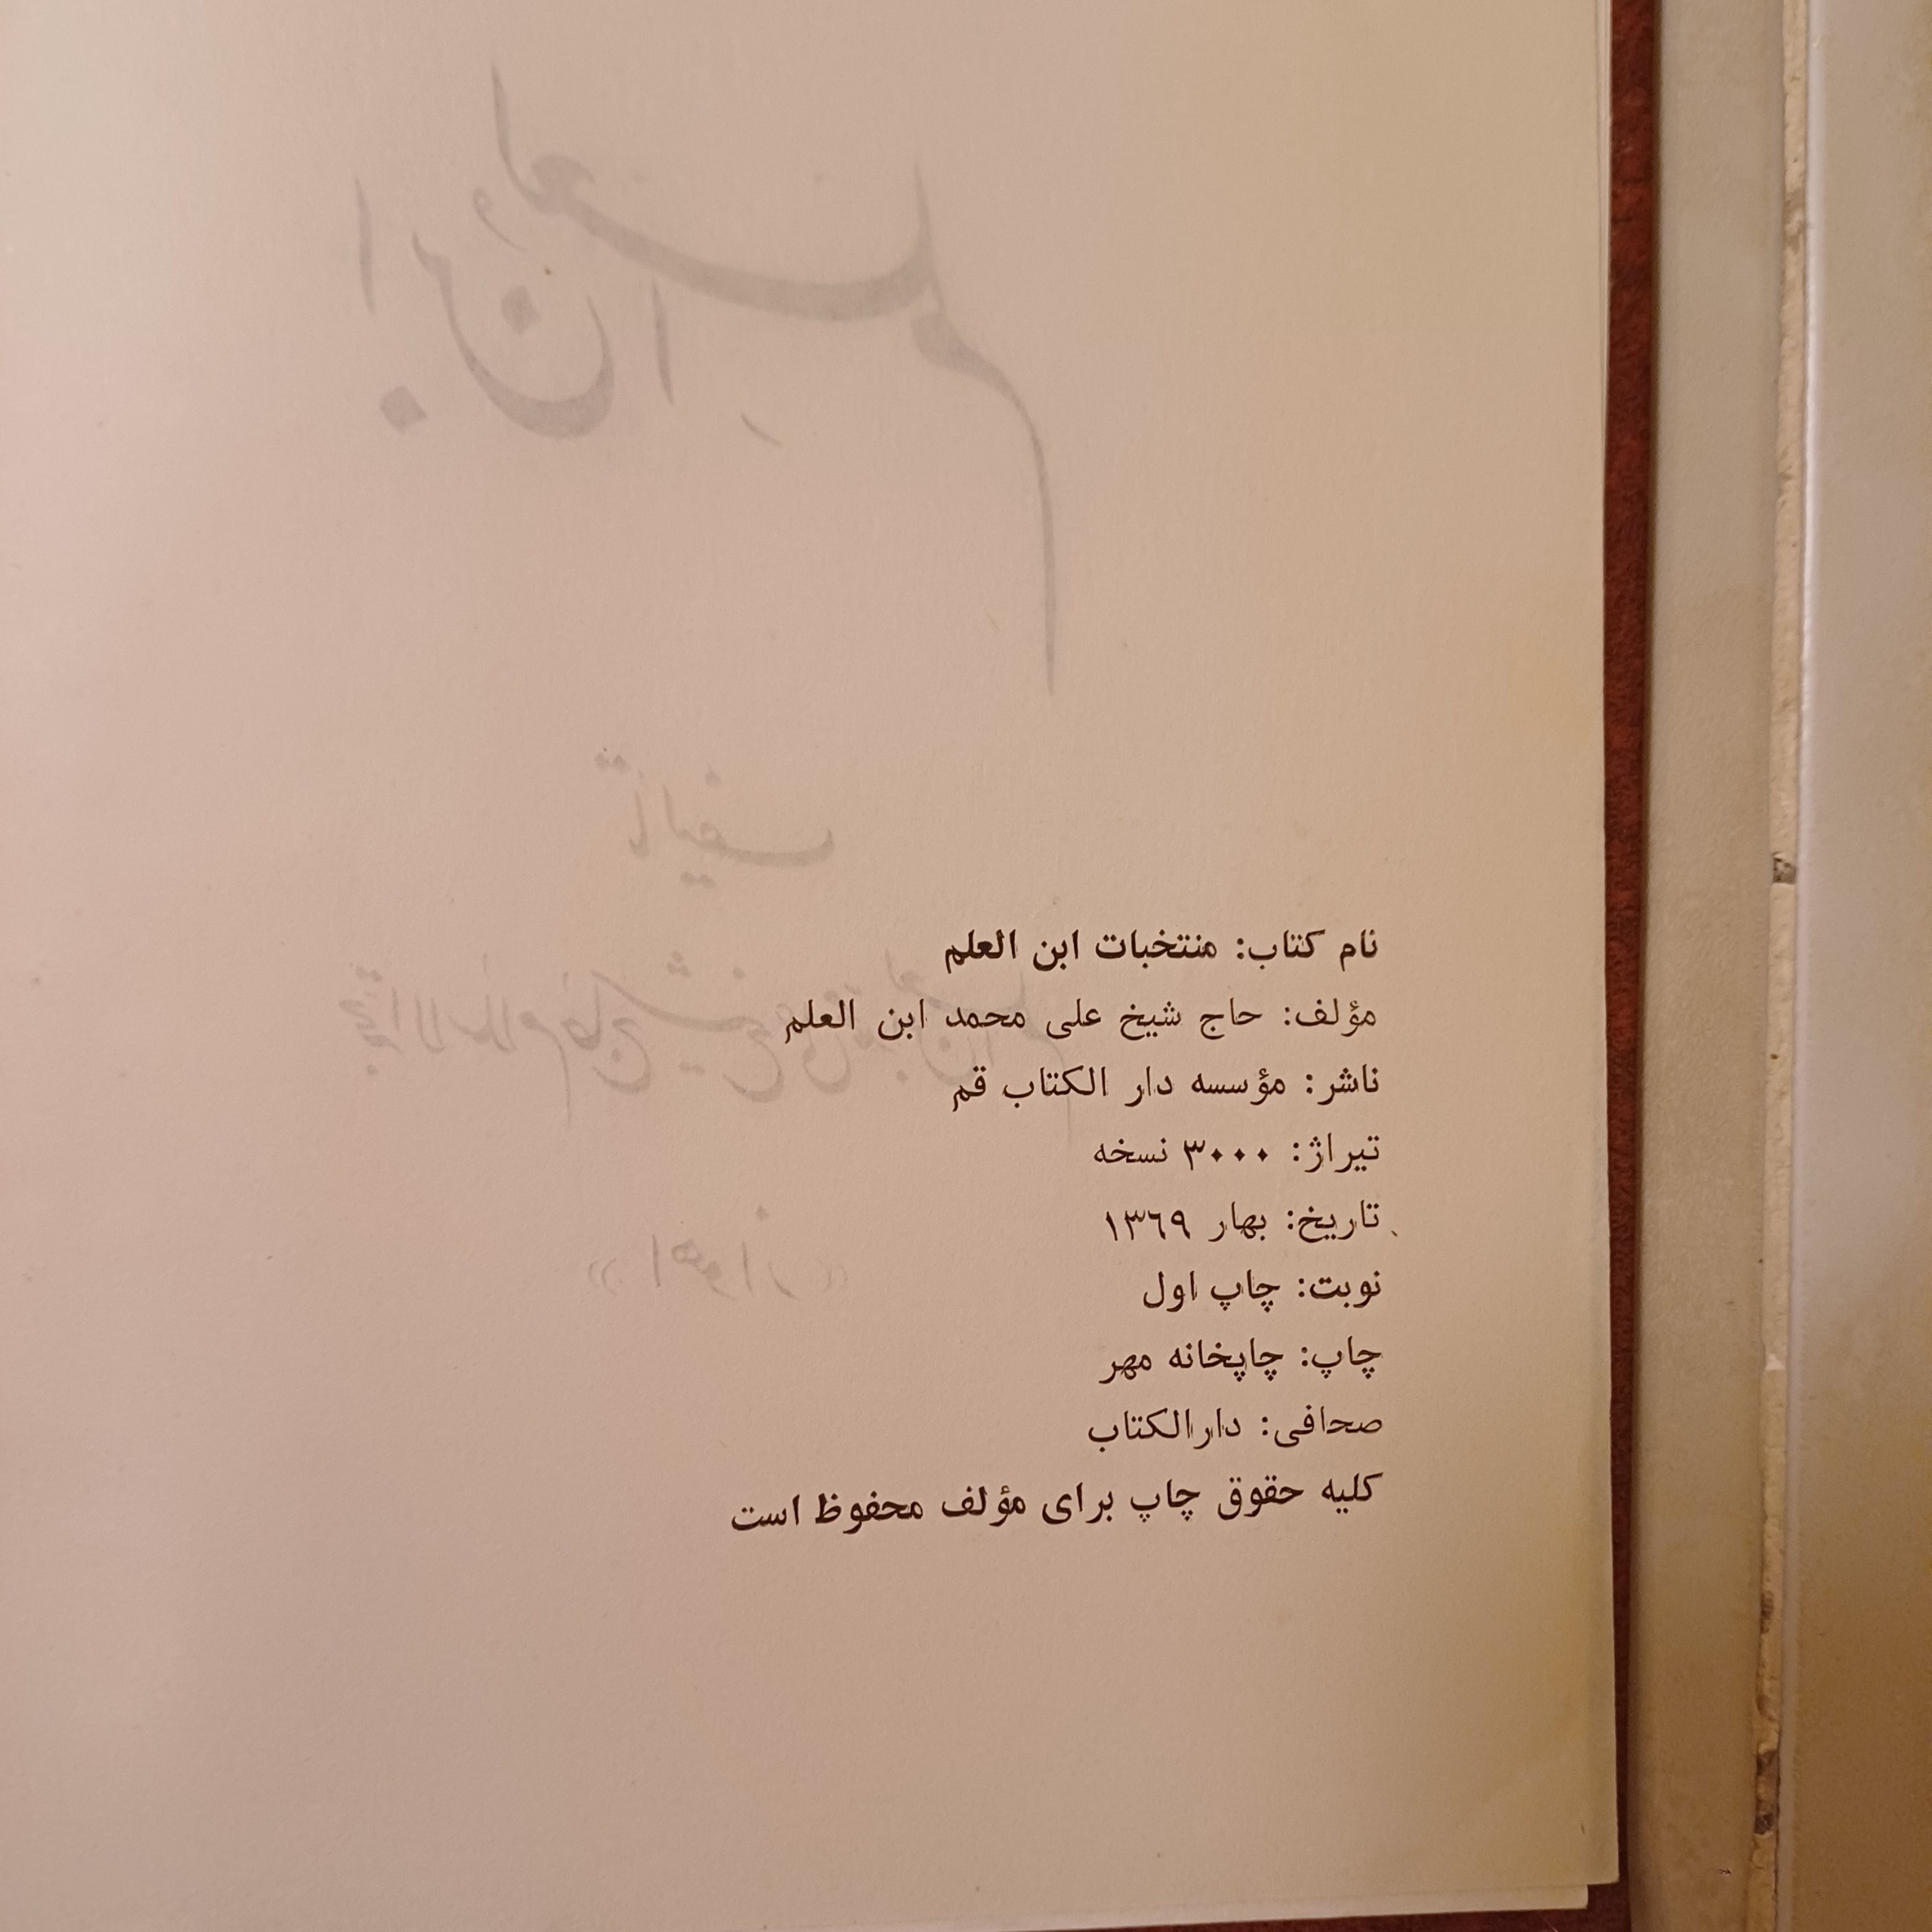 نام کتاب: منتخبات ابن العلم
مؤلف: حاج شیخ علی محمد ابن العلم
ناشر: مؤسسه دار الکتاب قم
تیراژ: ۳۰۰۰ نسخه
تاریخ: بهار ۱۳٦۹
نوبت: چاپ اول
چاپ: چاپخانه مهر
صحافی: دارالکتاب
کلیه حقوق چاپ برای مؤلف محفوظ است